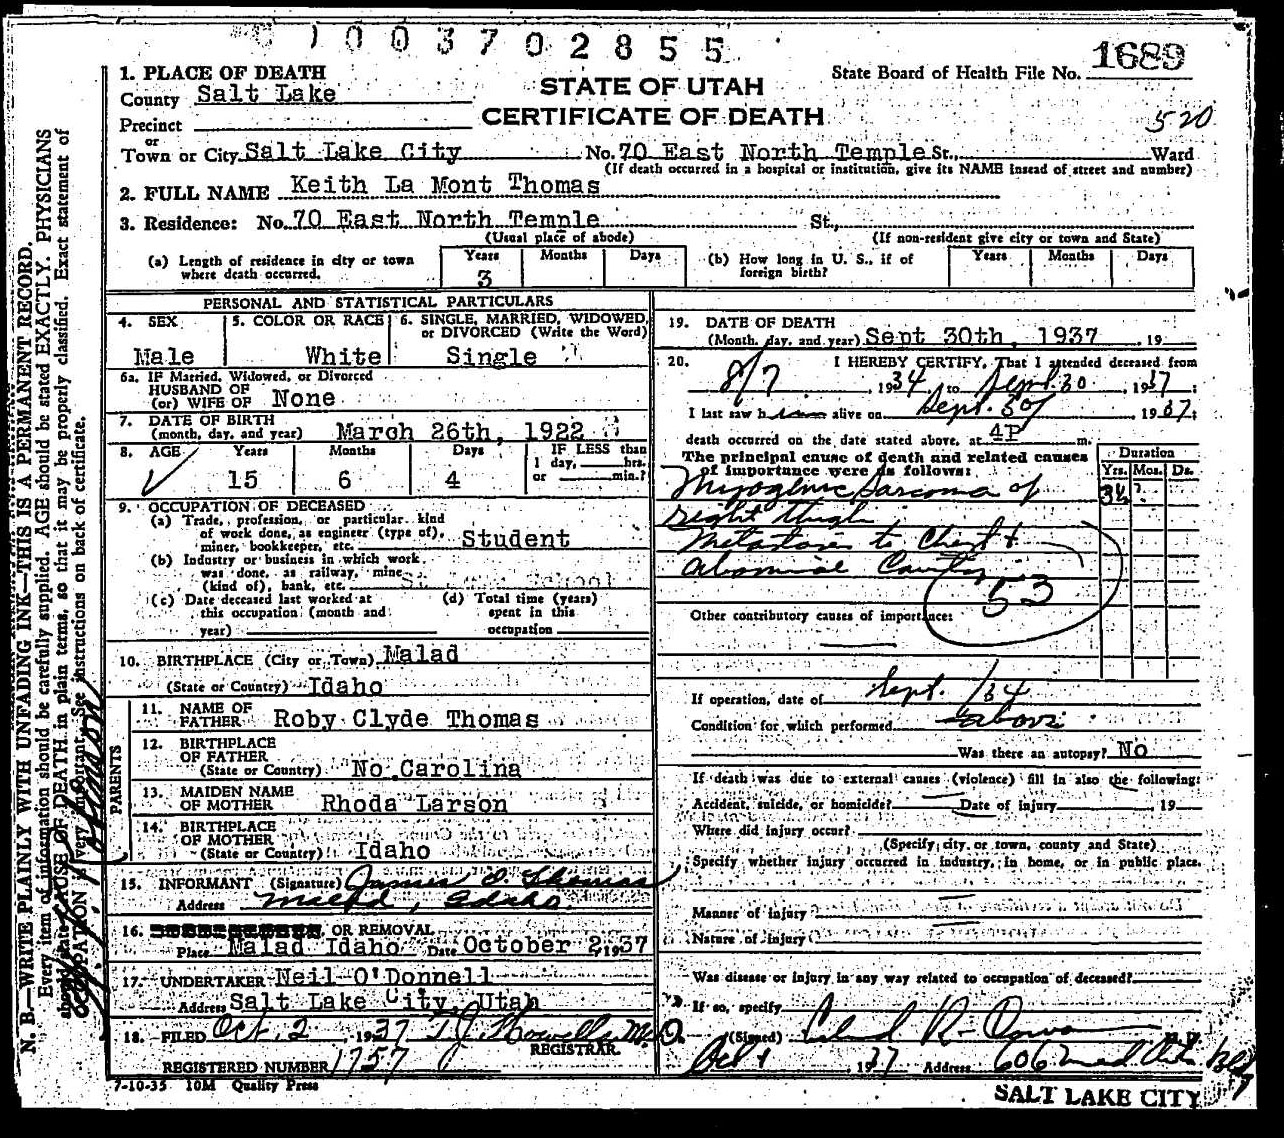 1003702855
1689
State Board of Health File No.
STATE OF UTAH
CERTIFICATE OF DEATH
520
1. PLACE OF DEATH
County Salt Lake
Precinct
or
Town or City Salt Lake City No. 70 East North Temple St., Ward
(If death occurred in a hospital or institution, give its NAME insead of street and number)
2. FULL NAME Keith La Mont Thomas
3. Residence: No. 70 East North Temple St.,
(Usual place of abode) (If non-resident give city or town and State)
(a) Length of residence in city or town where death occurred. Years 3 Months Days
(b) How long in U. S., if of foreign birth? Years Months Days
PERSONAL AND STATISTICAL PARTICULARS
4. SEX Male
5. COLOR OR RACE White
6. SINGLE, MARRIED, WIDOWED, or DIVORCED (Write the Word) Single
6a. IF Married, Widowed, or Divorced
HUSBAND OF
(or) WIFE OF None
7. DATE OF BIRTH
(month, day, and year) March 26th, 1922
8. AGE Years 15 Months 6 Days 4
IF LESS than
1 day, hrs.
or min.?
9. OCCUPATION OF DECEASED
(a) Trade, profession, or particular kind
of work done, as engineer (type of),
miner, bookkeeper, etc. Student
(b) Industry or business in which work
was done, as railway, mine
(kind of), bank, etc. School
(c) Date deceased last worked at
this occupation (month and
year)
(d) Total time (years)
spent in this
occupation
10. BIRTHPLACE (City or Town) Malad
(State or Country) Idaho
PARENTS
11. NAME OF
FATHER Roby Clyde Thomas
12. BIRTHPLACE
OF FATHER
(State or Country) No. Carolina
13. MAIDEN NAME
OF MOTHER Rhoda Larson
14. BIRTHPLACE
OF MOTHER
(State or Country) Idaho
15. INFORMANT (Signature) James D. Thomas
Address Malad, Idaho.
16. OR REMOVAL
Place Malad Idaho Date October 2, 1937
17. UNDERTAKER Neil O'Donnell
Address Salt Lake City, Utah
18. FILED Oct. 2 1937 T. J. Howells M.D.
REGISTRAR.
REGISTERED NUMBER 1757
7-10-35 10M Quality Press
19. DATE OF DEATH
(Month, day, and year) Sept 30th, 1937 19
20. I HEREBY CERTIFY, That I attended deceased from
8/7 1934 to Sept. 30 1937;
I last saw him alive on Sept. 30 1937;
death occurred on the date stated above, at 4P m.
The principal cause of death and related causes
of importance were as follows:
Duration
Yrs. Mos. Ds.
Myogenic Sarcoma of 3½
right thigh
Metastases to Chest +
abdominal Cavity
53
Other contributory causes of importance:
If operation, date of Sept. /34
Condition for which performed above
Was there an autopsy? No
If death was due to external causes (violence) fill in also the following:
Accident, suicide, or homicide? Date of injury 19
Where did injury occur?
(Specify city, or town, county and State)
Specify whether injury occurred in industry, in home, or in public place.
Manner of injury
Nature of injury
Was disease or injury in any way related to occupation of deceased?
If so, specify
(Signed) M.D.
Oct 1 1937 Address 606 Med Arts Bldg
SALT LAKE CITY
N. B.—WRITE PLAINLY WITH UNFADING INK—THIS IS A PERMANENT RECORD.
Every item of information should be carefully supplied. AGE should be stated EXACTLY. PHYSICIANS
should state CAUSE OF DEATH in plain terms, so that it may be properly classified. Exact statement of
OCCUPATION is very important. See instructions on back of certificate.